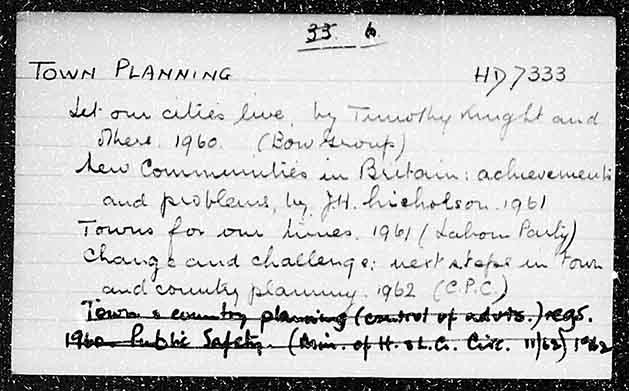 33 6
TOWN PLANNING HD7333
Let our cities live, by Timothy Knight and
others. 1960. (Bow Group)
New Communities in Britain: achievements
and problems, by J.H. Nicholson. 1961
Towns for our times. 1961 (Labour Party)
Change and challenge: next steps in town
and country planning. 1962 (C.P.C.)
Town & country planning (control of advts.) regs.
1960. Public Safety. (Min. of H. & L.G. Circ. 11/62) 1962